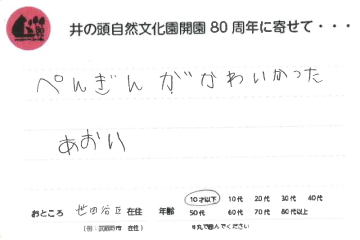 井の頭自然文化園開園 80 周年に寄せて・・・
ぺんぎんがかわいかった
あおい
おところ 世田谷区 在住 年齢 10才以下 10代 20代 30代 40代
(例：武蔵野市 在住) 50代 60代 70代 80代以上
※丸で囲んでください